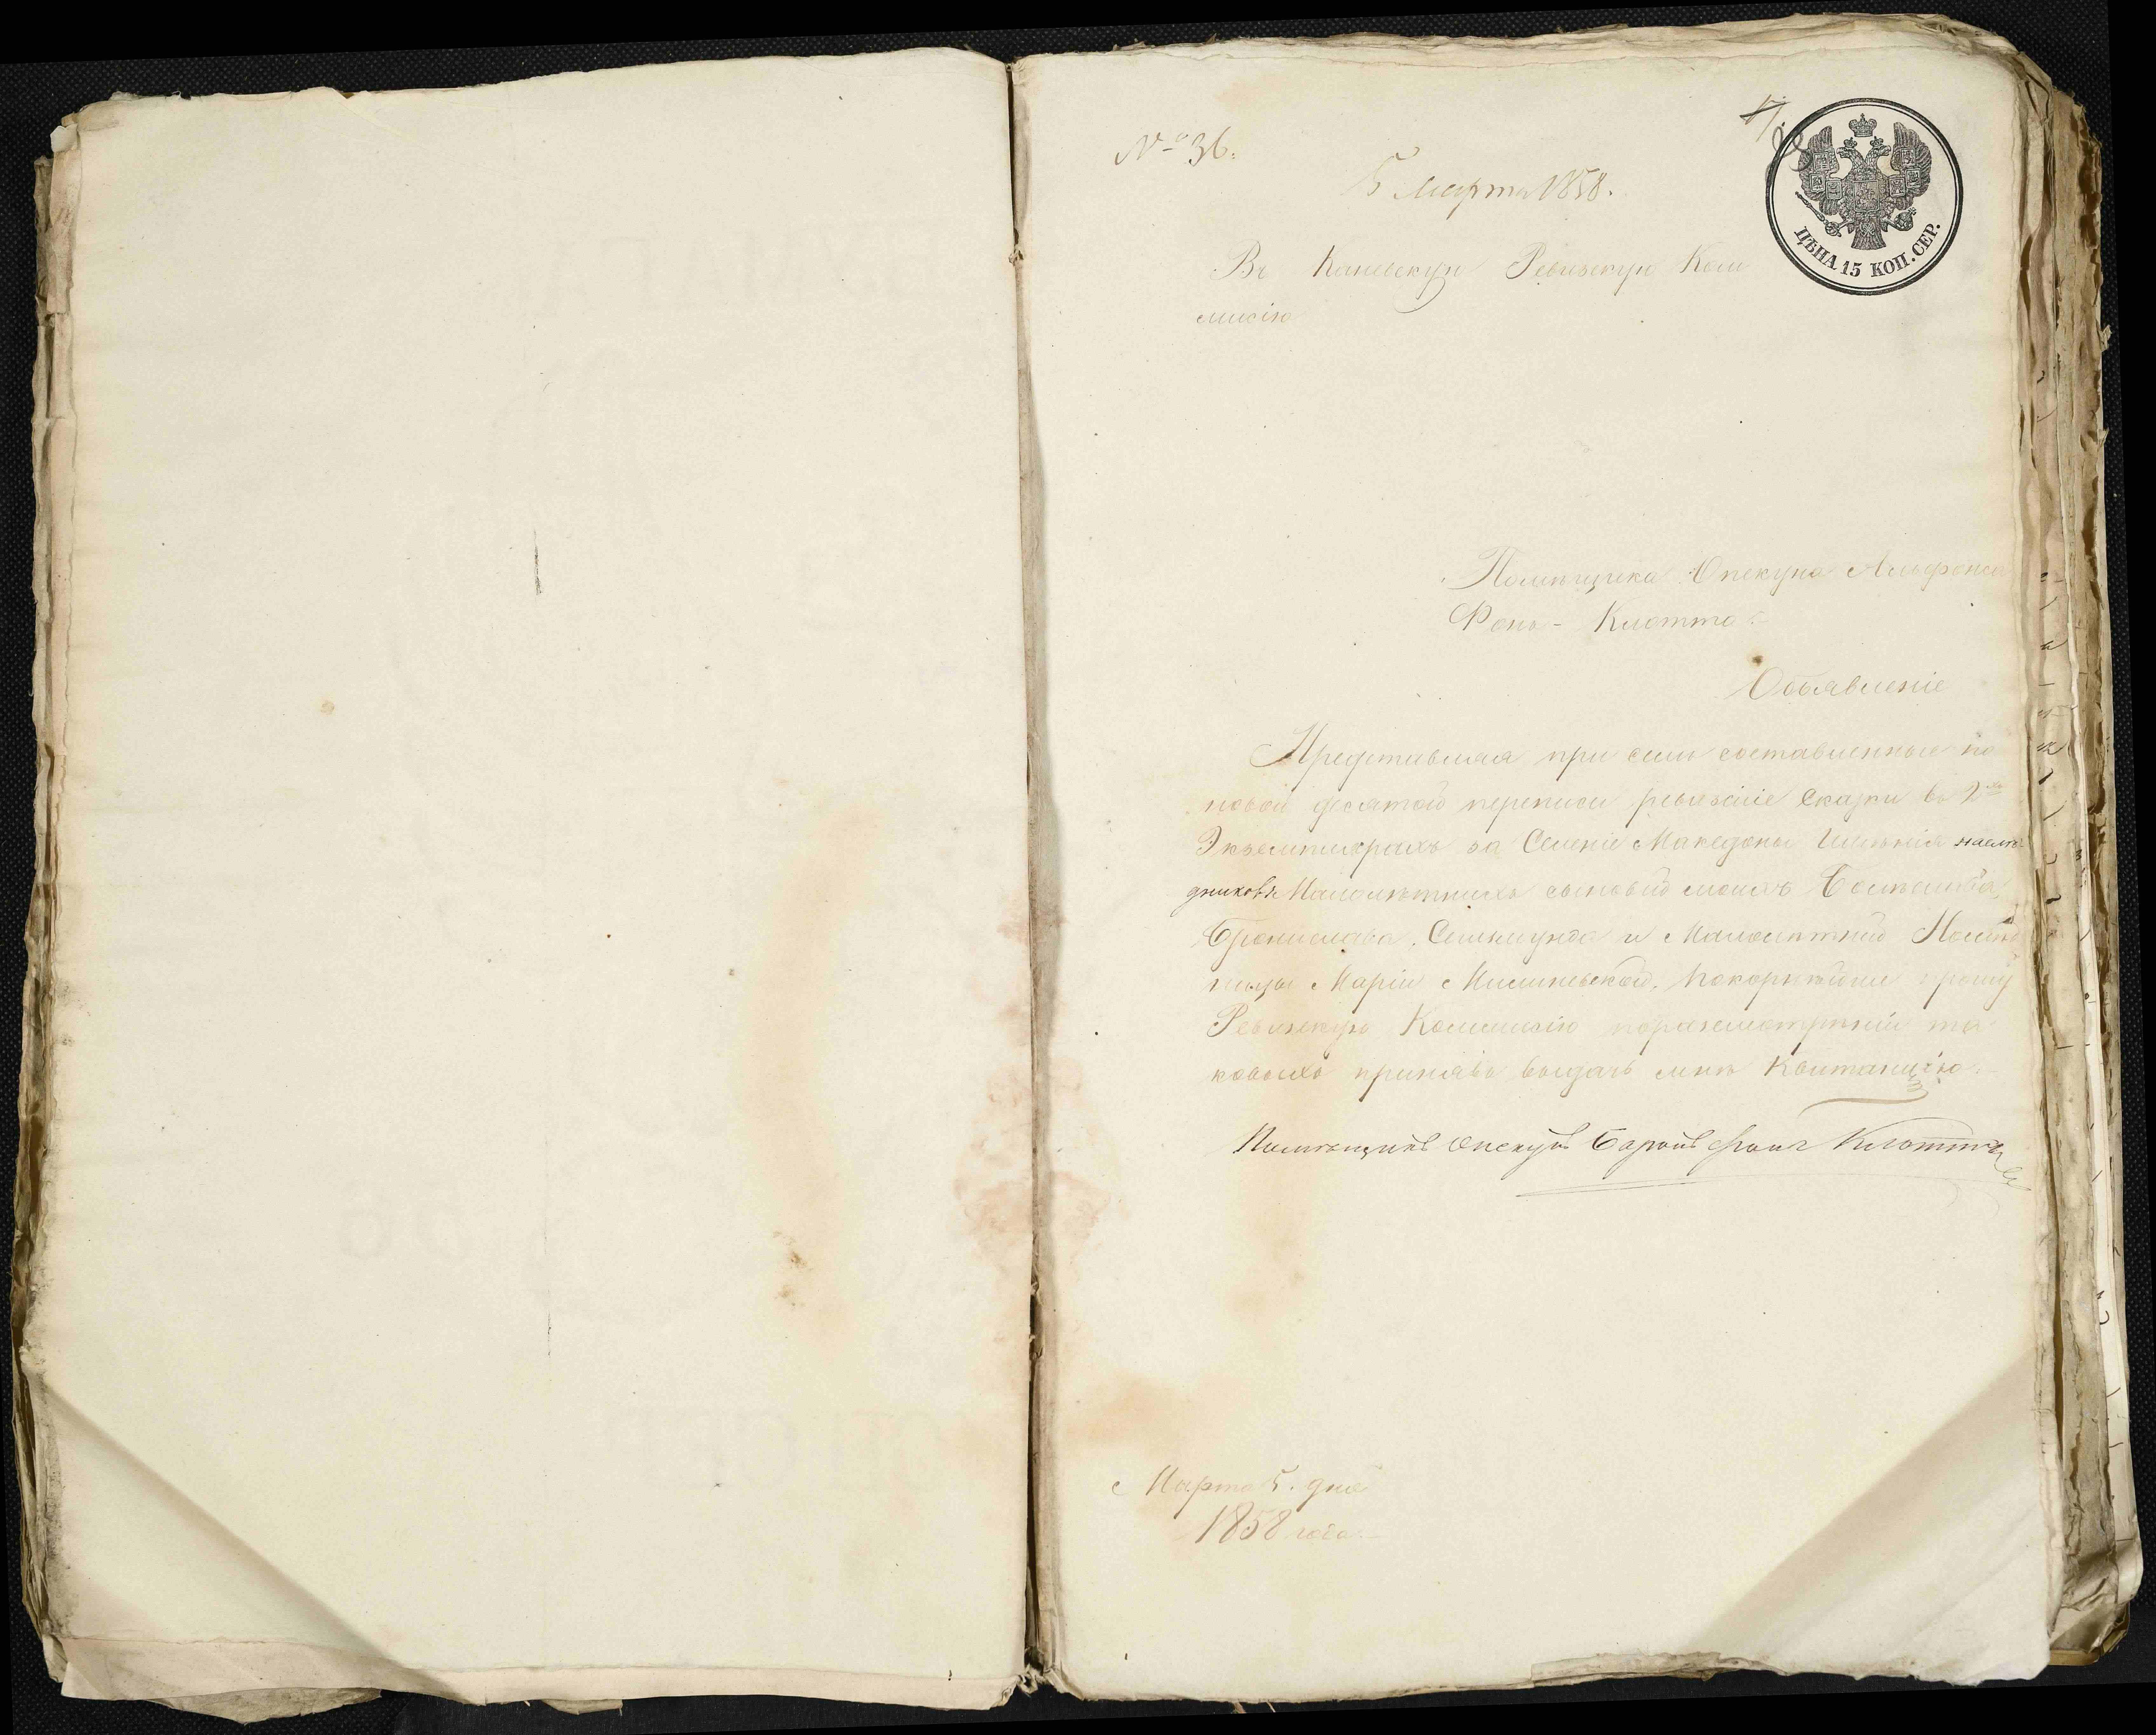 № 36.
5 Марта 1858.
ЦѢНА 15 КОП. СЕР.
Въ Каневскую Ревизскую Ком
мисію
Помѣщика Опекуна Альфонса
Фонъ-Клотто
Объявленіе
Представляя при семъ составленные по
новой десятой переписи ревизскіе сказки въ 2хъ
Экземплярахъ за Селеніе Македоны Имѣнія наслѣ
дниковъ Малолѣтнихъ сыновей моихъ Болеслава,
Бронислава, Сигизмунда и Малолѣтней
Маріи покорнѣйше прошу
Ревизскую Коммисію поразсмотрѣніи та
ковыхъ принявъ выдать мнѣ Квитанцію.
Помѣщикъ опекунъ Баронъ фонъ Клотто
Марта 5. дня
1858 года.